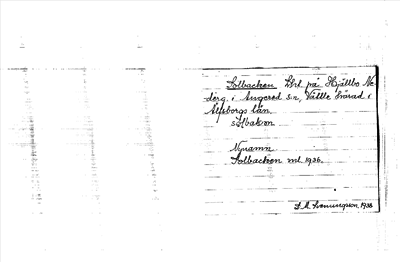 Solbacken lht. på Hjällbo Ne
derg. i Angered s:n, Vättle härad i
Älfsborgs län.
sólbakơn
Nynamn
Solbacken ml 1936.
1938